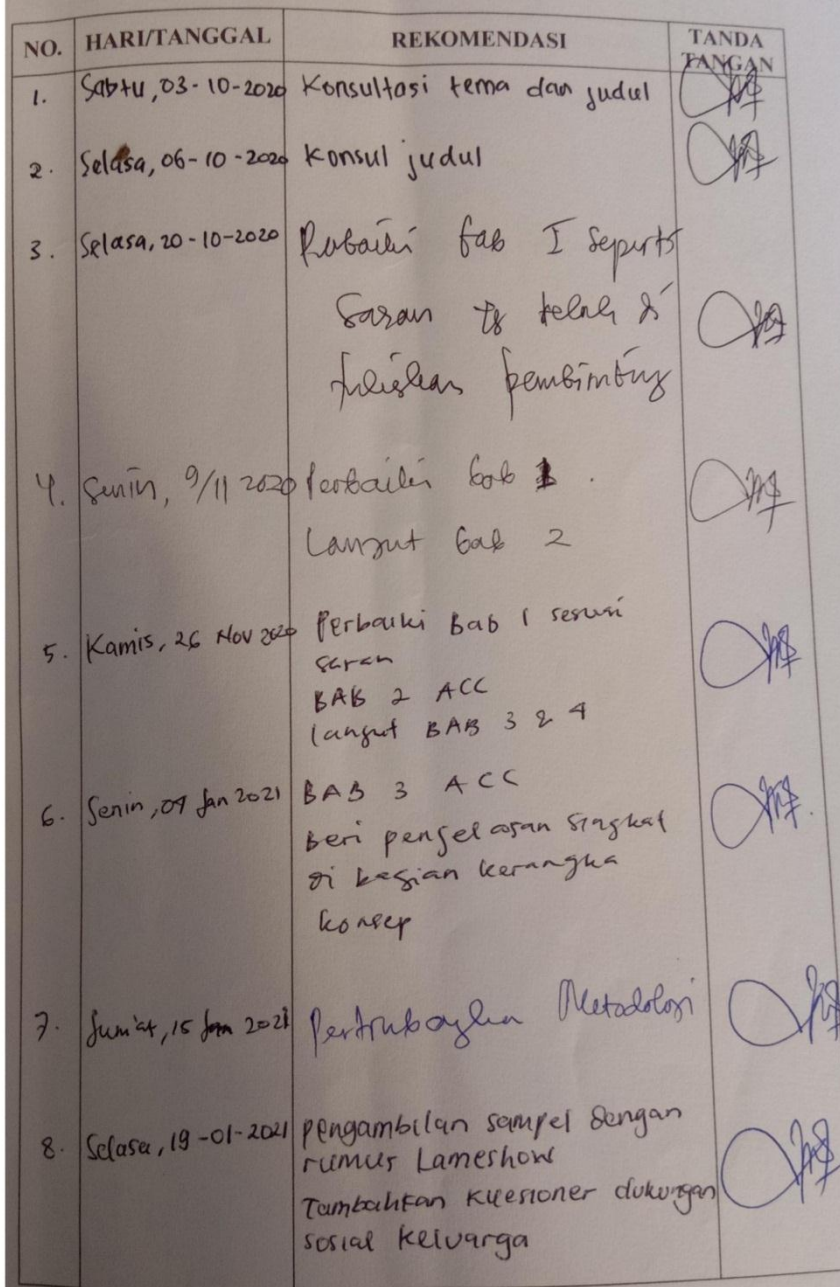 NO. HARI/TANGGAL REKOMENDASI TANDA TANGAN
1. Sabtu, 03-10-2020 Konsultasi tema dan judul
2. Selasa, 06-10-2020 Konsul judul
3. Selasa, 20-10-2020 Perbaiki bab I seperti
saran yg telah di
tuliskan pembimbing
4. Senin, 9/11 2020 Perbaiki bab 1.
Lanjut bab 2
5. Kamis, 26 Nov 2020 Perbaiki Bab 1 sesuai
saran
BAB 2 ACC
lanjut BAB 3 & 4
6. Senin, 04 Jan 2021 BAB 3 ACC
Beri penjelasan singkat
di bagian kerangka
konsep
7. Jum'at, 15 Jan 2021 Metodologi
8. Selasa, 19-01-2021 pengambilan sampel dengan
rumus Lameshow
Tambahkan Kuesioner dukungan
sosial keluarga